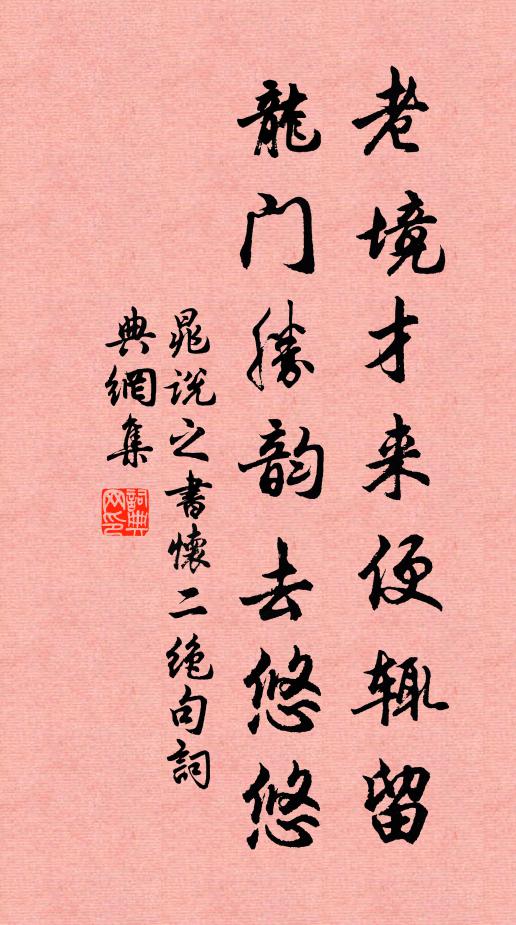 老境才来便辄留
龍门勝韵去悠悠
晁説之書懷二绝句詞
典網集
詞典網印